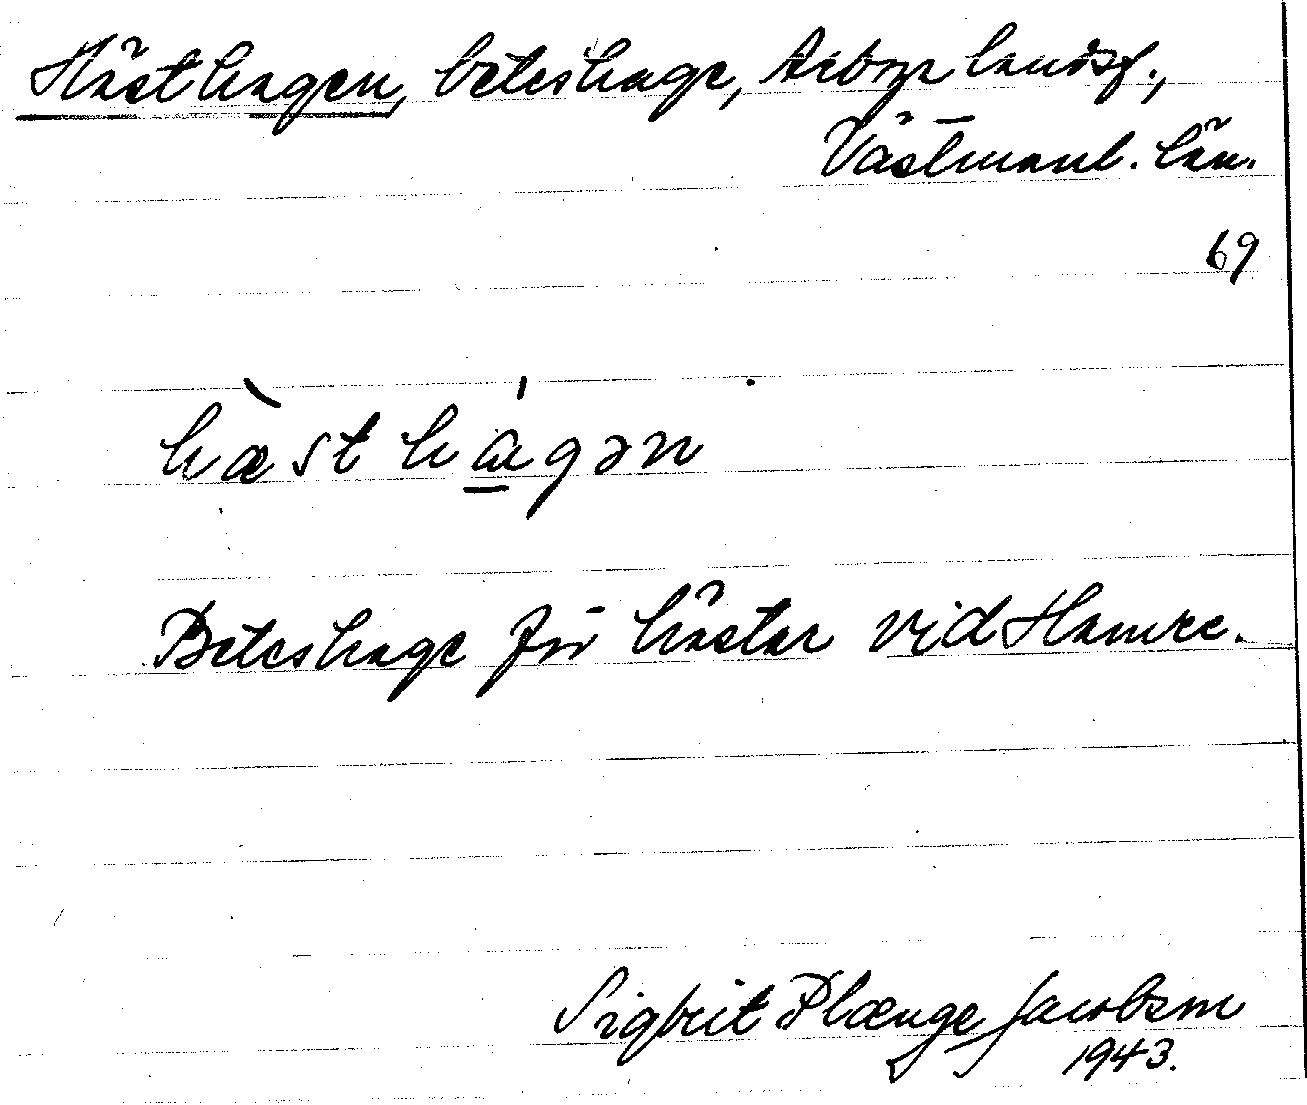 Hästhagen, beteshage, Arboga landsf.,
Västmanl. län.
69
hæ̀sthágən
Beteshage för hästar vid Hamre.
Sigbrit Plænge Jacobson
1943.